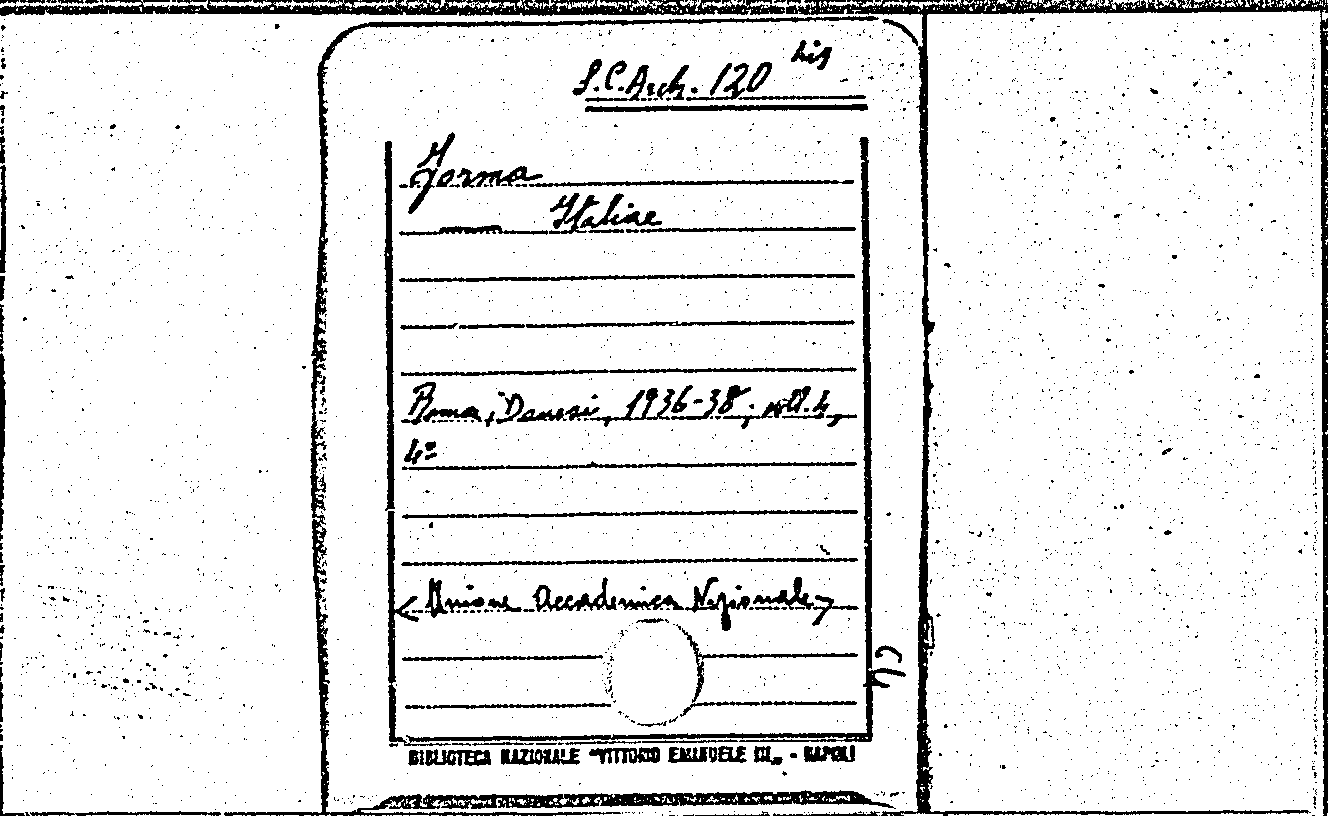 S.C. Arch. 120 bis
Forma
Italiae
Roma, Danesi, 1936-38; voll. 4,
4º
<Unione Accademica Nazionale>
BIBLIOTECA NAZIONALE "VITTORIO EMANUELE III" - NAPOLI